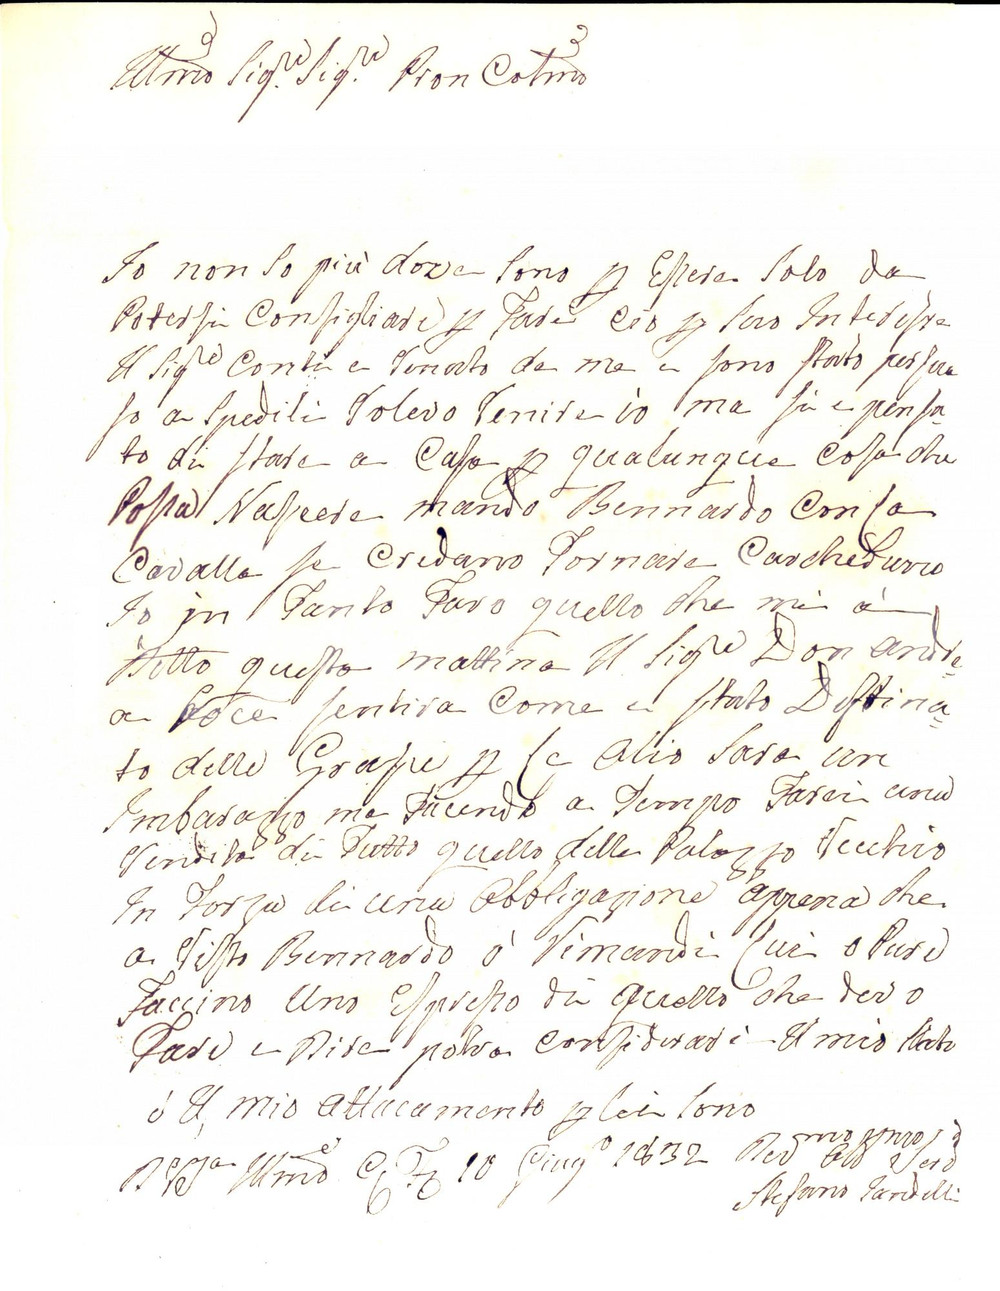 Illmo Sigre Sigre Pron Colmo
Io non so più dove sono p Essere solo da
Potersi Consigliare p Fare ciò p loro Interesse
Il Sigre Conti e Venuto da me e sono stato persua
so a Spedili Volevo Venire io ma si e pensa=
to di stare a Casa p qualunque cosa che
Possa Nascere mando Bennardo Con la
Cavalla se Credano Tornare Carchedunio
Io in Tanto Faro quello che mi á
Detto questa mattina Il Sigre Don Andre=
a Voce sentira Come e stato Destina=
to delle Grasse p Le Olio Sara un
Imbarazzo ma Facendo a Tempo Farei una
Vendita di Tutto quello della Palazzo Vecchio
In Forza di una Obbligazione appena che
a Visto Bennardo ó Rimandi Lui o Pure
Faccino Uno Espresso di quello che devo
Fare e Dire potra considerare Il mio stato
é Il mio attaccamento p lei sono
DSSa Illmo 10 Giugo 1832
Stefano Tardelli